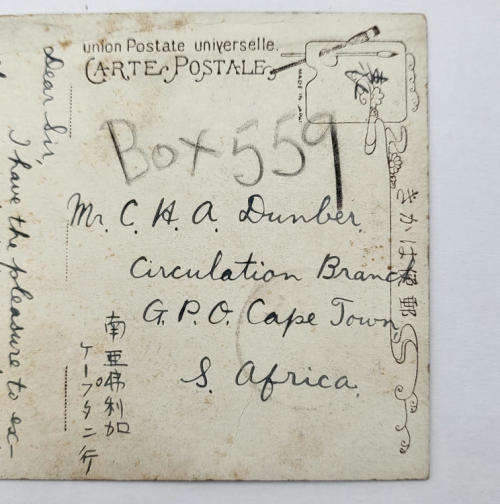 union Postale universelle.
CARTE POSTALE
MADE IN
Box 559
Mr. C. H. A. Dunber.
Circulation Branch
G. P. O. Cape Town
S. Africa.
南亜弗利加
ケープタニ行
きかは便郵
Dear Sir,
I have the pleasure to ex-